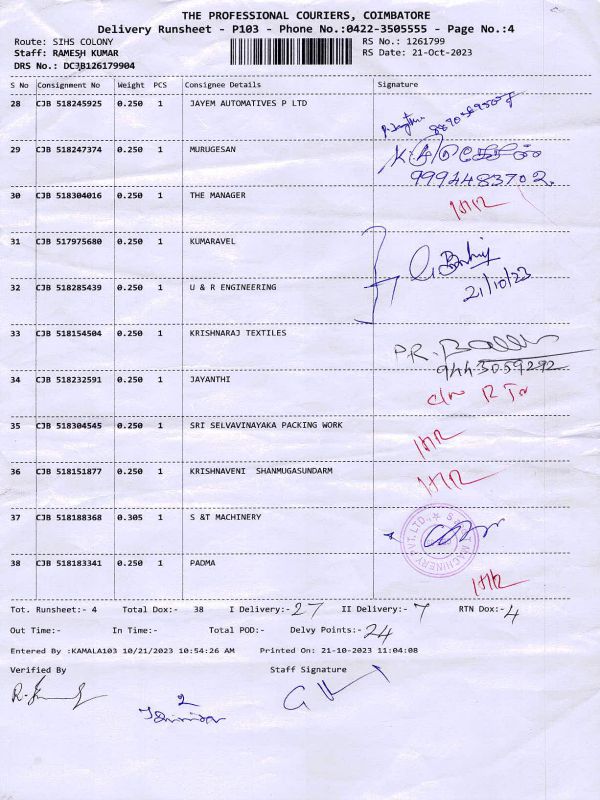 THE PROFESSIONAL COURIERS, COIMBATORE
Delivery Runsheet - P103 - Phone No.:0422-3505555 - Page No.:4
Route: SIHS COLONY RS No.: 1261799
Staff: RAMESH KUMAR RS Date: 21-Oct-2023
DRS No.: DCJB126179904
S No Consignment No Weight PCS Consignee Details Signature
28 CJB 518245925 0.250 1 JAYEM AUTOMATIVES P LTD
29 CJB 518247374 0.250 1 MURUGESAN
9994483702.
30 CJB 518304016 0.250 1 THE MANAGER
31 CJB 517975680 0.250 1 KUMARAVEL
32 CJB 518285439 0.250 1 U & R ENGINEERING
21/10/23
33 CJB 518154504 0.250 1 KRISHNARAJ TEXTILES
9443059292
34 CJB 518232591 0.250 1 JAYANTHI
35 CJB 518304545 0.250 1 SRI SELVAVINAYAKA PACKING WORK
36 CJB 518151877 0.250 1 KRISHNAVENI SHANMUGASUNDARM
37 CJB 518188368 0.305 1 S &T MACHINERY
38 CJB 518183341 0.250 1 PADMA
Tot. Runsheet:- 4 Total Dox:- 38 I Delivery:- 27 II Delivery:- 7 RTN Dox:- 4
Out Time:- In Time:- Total POD:- Delvy Points:- 24
Entered By :KAMALA103 10/21/2023 10:54:26 AM Printed On: 21-10-2023 11:04:08
Verified By Staff Signature